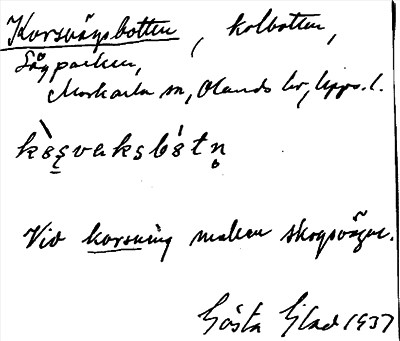 Korsvägsbotten, kolbotten,
Sågparken,
Morkarla sn, Olands hd, Uppl.
Vid korsning mellan skogsvägar.
Gösta Eklad 1937